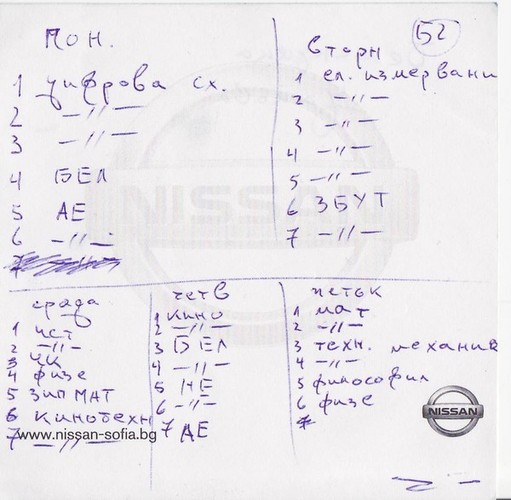 Б2
ПОН.
1 цифрова сх.
2 –//–
3 –//–
4 БЕЛ
5 АЕ
6 –//–
вторн
1 ел. измервани
2 –//–
3 –//–
4 –//–
5 –//–
6 ЗБУТ
7 –//–
сряда
1 ист
2 –//–
3 ЧК
4 физе
5 ЗИП МАТ
6 кинотехн
7 –//–
четв
1 кино
2 –//–
3 БЕЛ
4 –//–
5 НЕ
6 –//–
7 АЕ
петък
1 мат
2 –//–
3 техн. механик
4 –//–
5 философия
6 физе
7
NISSAN
NISSAN
www.nissan-sofia.bg